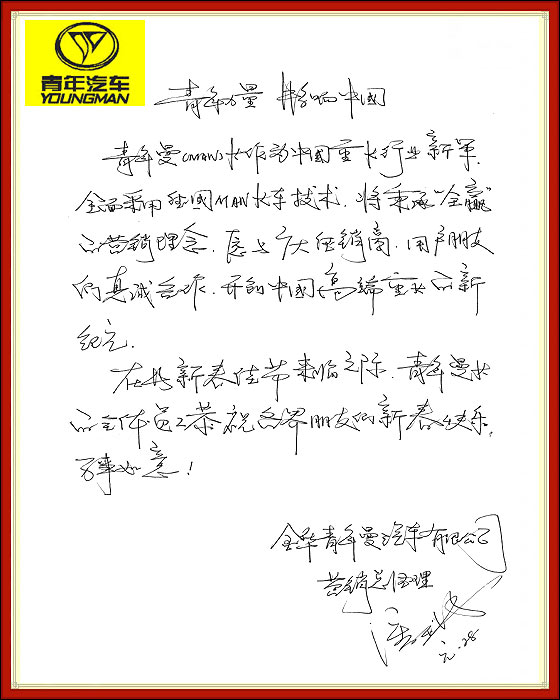 青年汽车
YOUNGMAN
青年力量 撼响中国
青年曼(MAN)卡作为中国重卡行业新军,
全面采用德国MAN卡车技术,将秉承"全赢"
的营销理念,愿与广大经销商、用户朋友
们真诚合作,开创中国高端重卡的新
纪元。
在此新春佳节来临之际,青年曼卡
的全体员工恭祝各界朋友们新春快乐,
万事如意!
金华青年曼汽车有限公司
营销总经理
元.28